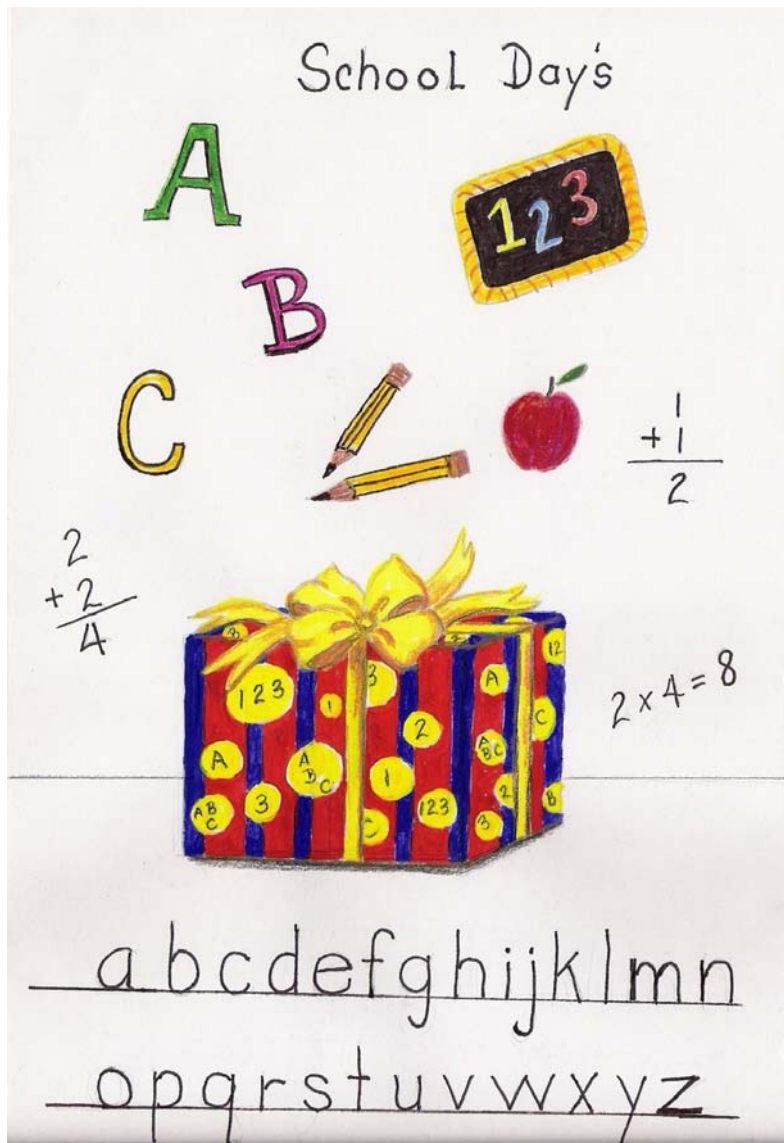 School Day's
A
1 2 3
B
C
1
+ 1
2
2
+ 2
4
2 x 4 = 8
B
2
123
1
3
2
A
12
C
A
A
B C
A
B C
1
2
A B
C
3
123
C
3
B
a b c d e f g h i j k l m n
o p q r s t u v w x y z